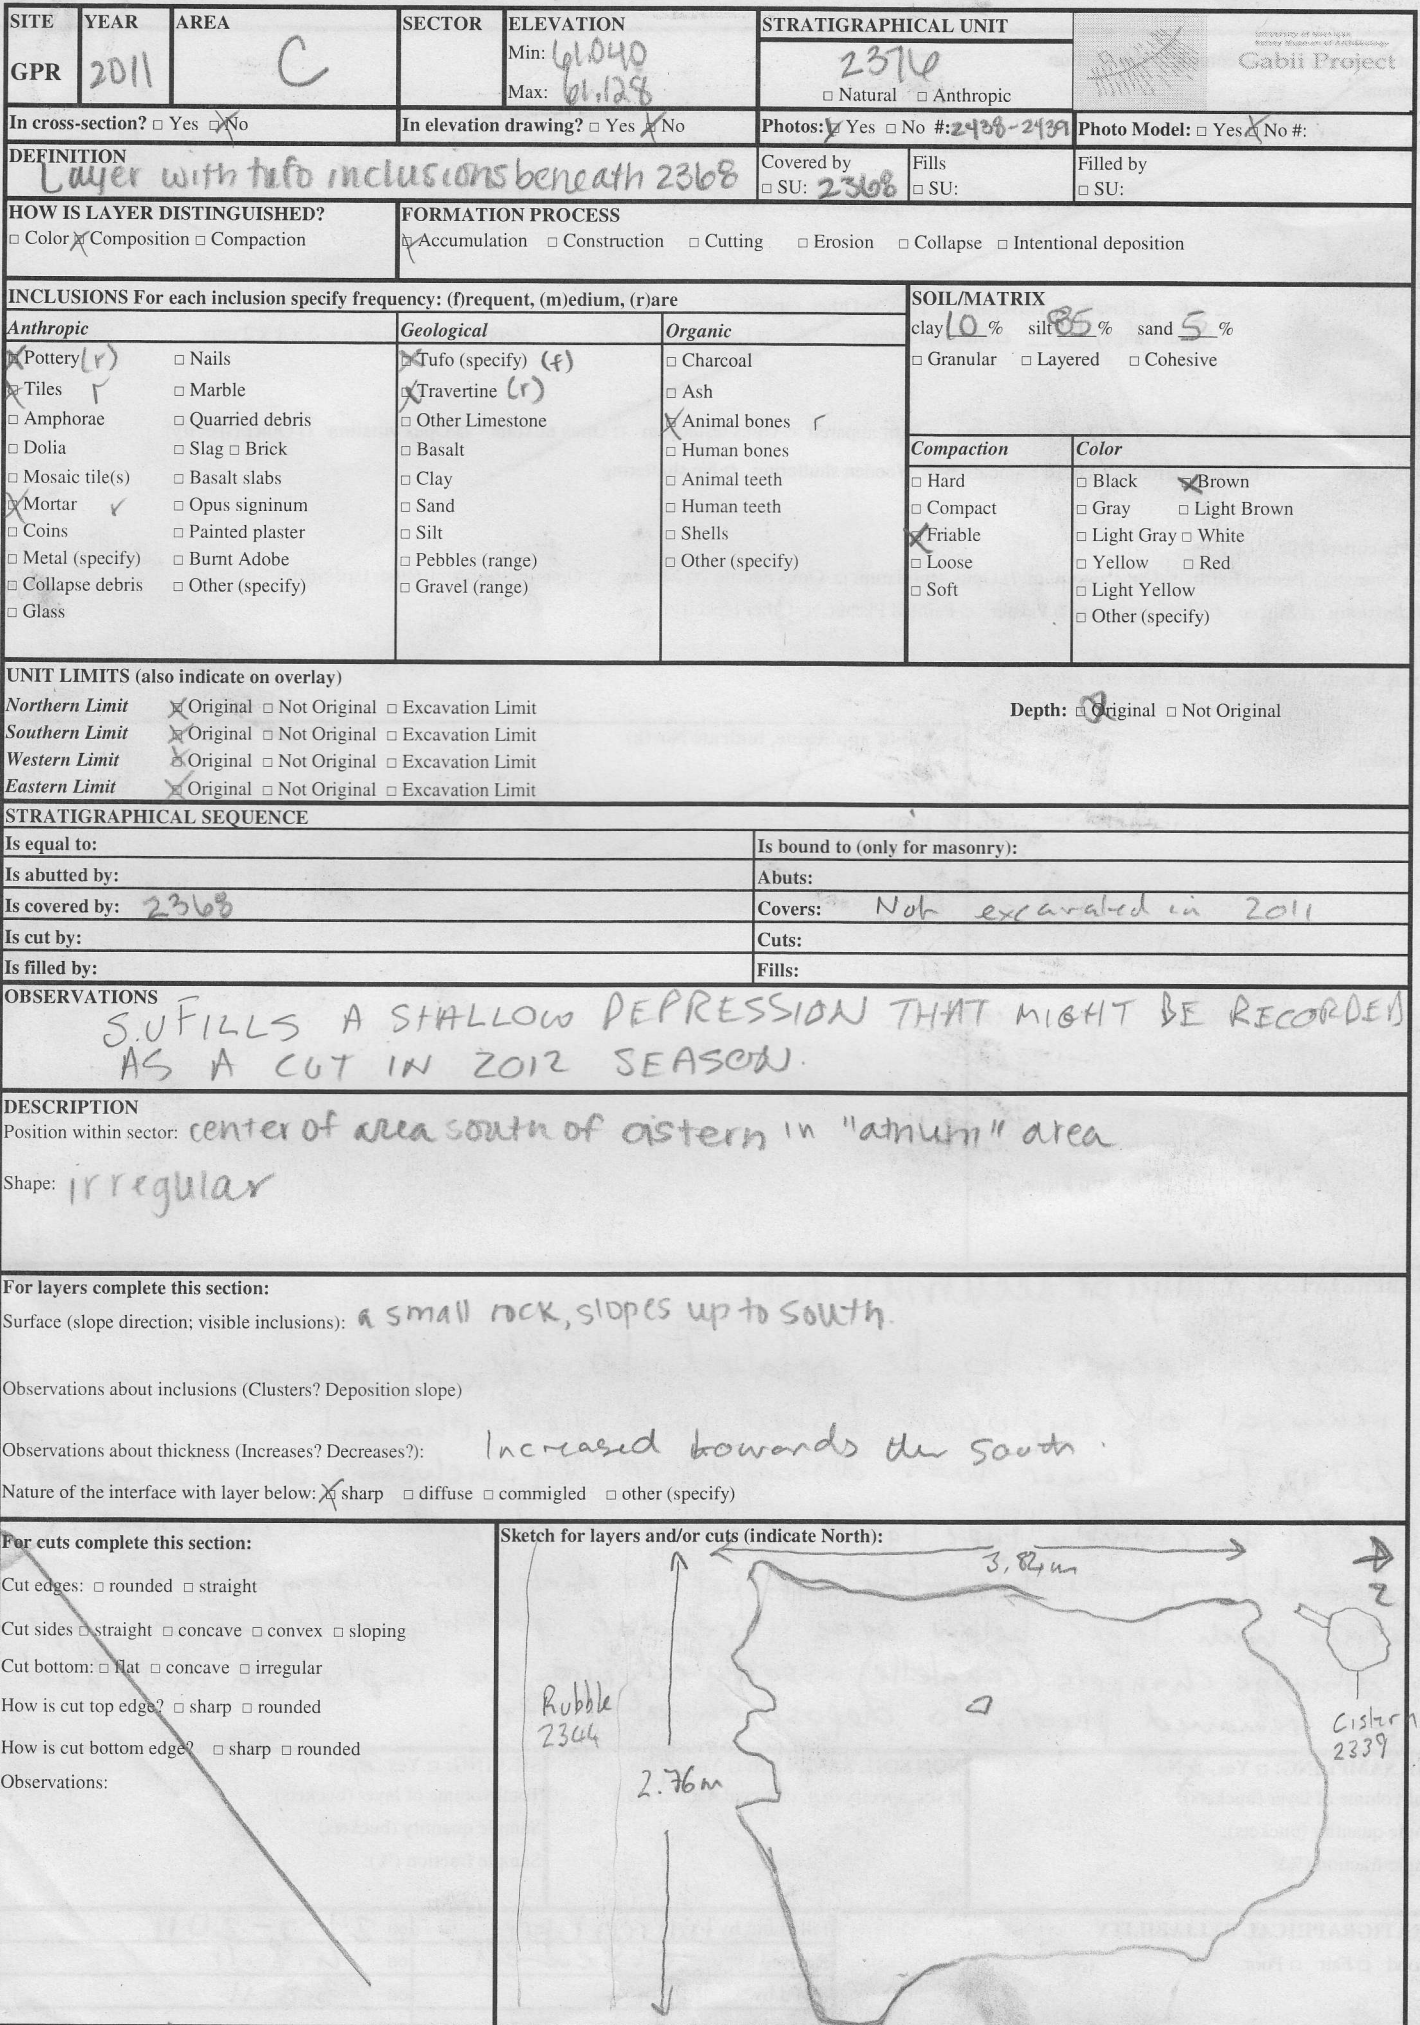 SITE YEAR AREA SECTOR ELEVATION STRATIGRAPHICAL UNIT
GPR 2011 C Min: 61.040 2376
Max: 61.128 □ Natural □ Anthropic
Gabii Project
In cross-section? □ Yes ☒ No In elevation drawing? □ Yes ☒ No Photos: ☒ Yes □ No #: 2438-2439 Photo Model: □ Yes ☒ No #:
DEFINITION
Layer with tufo inclusions beneath 2368
Covered by Fills Filled by
□ SU: 2368 □ SU: □ SU:
HOW IS LAYER DISTINGUISHED? FORMATION PROCESS
□ Color ☒ Composition □ Compaction ☒ Accumulation □ Construction □ Cutting □ Erosion □ Collapse □ Intentional deposition
INCLUSIONS For each inclusion specify frequency: (f)requent, (m)edium, (r)are
Anthropic
☒ Pottery (r) □ Nails
☒ Tiles r □ Marble
□ Amphorae □ Quarried debris
□ Dolia □ Slag □ Brick
□ Mosaic tile(s) □ Basalt slabs
☒ Mortar r □ Opus signinum
□ Coins □ Painted plaster
□ Metal (specify) □ Burnt Adobe
□ Collapse debris □ Other (specify)
□ Glass
Geological
☒ Tufo (specify) (f)
☒ Travertine (r)
□ Other Limestone
□ Basalt
□ Clay
□ Sand
□ Silt
□ Pebbles (range)
□ Gravel (range)
Organic
□ Charcoal
□ Ash
☒ Animal bones r
□ Human bones
□ Animal teeth
□ Human teeth
□ Shells
□ Other (specify)
SOIL/MATRIX
clay 10 % silt 85 % sand 5 %
□ Granular □ Layered □ Cohesive
Compaction
□ Hard
□ Compact
☒ Friable
□ Loose
□ Soft
Color
□ Black ☒ Brown
□ Gray □ Light Brown
□ Light Gray □ White
□ Yellow □ Red
□ Light Yellow
□ Other (specify)
UNIT LIMITS (also indicate on overlay)
Northern Limit ☒ Original □ Not Original □ Excavation Limit Depth: ☒ Original □ Not Original
Southern Limit ☒ Original □ Not Original □ Excavation Limit
Western Limit ☒ Original □ Not Original □ Excavation Limit
Eastern Limit ☒ Original □ Not Original □ Excavation Limit
STRATIGRAPHICAL SEQUENCE
Is equal to: Is bound to (only for masonry):
Is abutted by: Abuts:
Is covered by: 2368 Covers: Not excavated in 2011
Is cut by: Cuts:
Is filled by: Fills:
OBSERVATIONS
S.U FILLS A SHALLOW DEPRESSION THAT MIGHT BE RECORDED
AS A CUT IN 2012 SEASON.
DESCRIPTION
Position within sector: center of area south of cistern in "atrium" area
Shape: irregular
For layers complete this section:
Surface (slope direction; visible inclusions): a small rock, slopes up to south.
Observations about inclusions (Clusters? Deposition slope)
Observations about thickness (Increases? Decreases?): Increased towards the south.
Nature of the interface with layer below: ☒ sharp □ diffuse □ commigled □ other (specify)
For cuts complete this section:
Cut edges: □ rounded □ straight
Cut sides □ straight □ concave □ convex □ sloping
Cut bottom: □ flat □ concave □ irregular
How is cut top edge? □ sharp □ rounded
How is cut bottom edge? □ sharp □ rounded
Observations:
Sketch for layers and/or cuts (indicate North):
3.84m
Z
Rubble
2344
2.76m
Cistern
2339